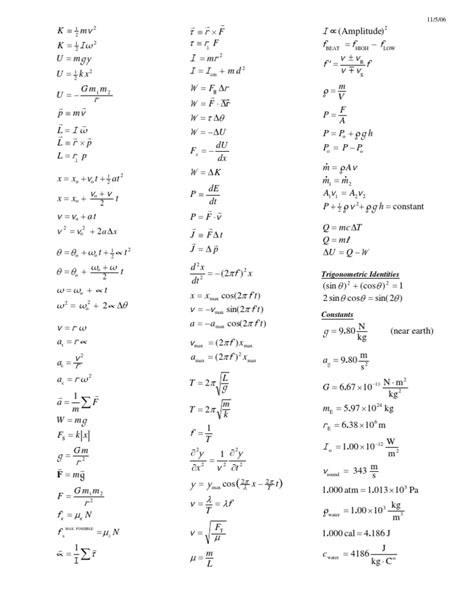 11/5/06
K = ½mv²
K = ½Iω²
U = mgy
U = ½kx²
U = −Gm₁m₂/r
p⃗ ≡ mv⃗
L⃗ = I ω⃗
L⃗ = r⃗ × p⃗
L = r⊥ p
x = xₒ + vₒt + ½at²
x = xₒ + (vₒ + v)/2 t
v = vₒ + at
v² = vₒ² + 2aΔx
θ = θₒ + ωₒt + ½∝t²
θ = θₒ + (ωₒ + ω)/2 t
ω = ωₒ + ∝t
ω² = ωₒ² + 2∝Δθ
v = r ω
aₜ = r∝
a꜀ = v²/r
a꜀ = r ω²
a⃗ = 1/m ∑F⃗
W = mg
Fₛ = k|x|
g = Gm/r²
F⃗ = mg⃗
F = Gm₁m₂/r²
fₖ = μₖ N
fₛ MAX POSSIBLE = μₛ N
∝⃗ = 1/I ∑τ⃗
τ⃗ ≡ r⃗ × F⃗
τ = r⊥ F
I = mr²
I = Icm + md²
W = F∥ Δr
W = F⃗ · Δr⃗
W = τ Δθ
W = −ΔU
Fₓ = −dU/dx
W = ΔK
P = dE/dt
P = F⃗ · v⃗
J⃗ ≡ F⃗Δt
J⃗ = Δp⃗
d²x/dt² = −(2πf)² x
x = xmax cos(2πft)
v = −vmax sin(2πft)
a = −amax cos(2πft)
vmax = (2πf)xmax
amax = (2πf)² xmax
T = 2π√(L/g)
T = 2π√(m/k)
f = 1/T
∂²y/∂x² = 1/v² ∂²y/∂t²
y = ymax cos(2π/λ x − 2π/T t)
v = λ/T = λf
v = √(FT/μ)
μ = m/L
I ∝ (Amplitude)²
fBEAT = fHIGH − fLOW
f′ = (v ± vR)/(v ∓ vS) f
ρ = m/V
P = F/A
P = Pₒ + ρgh
P = P − Pₒ
ṁ = ρAv
ṁ₁ = ṁ₂
A₁v₁ = A₂v₂
P + ½ρv² + ρgh = constant
Q = mcΔT
Q = ml
ΔU = Q − W
Trigonometric Identities
(sin θ)² + (cos θ)² = 1
2 sin θ cos θ = sin(2θ)
Constants
g = 9.80 N/kg (near earth)
a = 9.80 m/s²
G = 6.67×10⁻¹¹ N·m²/kg²
mE = 5.97×10²⁴ kg
rE = 6.38×10⁶ m
Iₒ = 1.00×10⁻¹² W/m²
vsound = 343 m/s
1.000 atm = 1.013×10⁵ Pa
ρwater = 1.00×10³ kg/m³
1.000 cal = 4.186 J
cwater = 4186 J/kg·C°